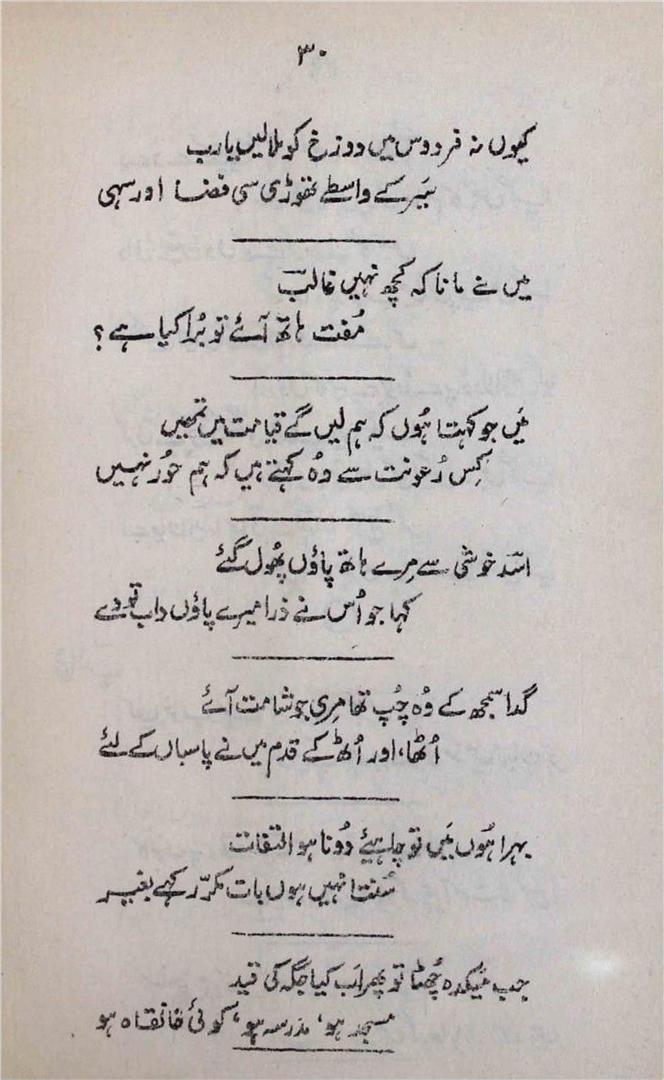 ۳۰
کیوں نہ فردوس میں دوزخ کو ملا لیں یارب
سَیر کے واسطے تھوڑی سی فضا اور سہی
میں نے مانا کہ کچھ نہیں غالبؔ
مُفت ہاتھ آئے تو بُرا کیا ہے؟
مَیں جو کہتا ہُوں کہ ہم لیں گے قیامت میں تمھیں
کِس رُعونت سے وُہ کہتے ہیں کہ ہم حُور نہیں
اسؔد خوشی سے مِرے ہاتھ پاؤں پھُول گئے
کہا جو اُس نے ذرا میرے پاؤں داب تو دے
گدا سمجھ کے وُہ چُپ تھا مِری جو شامت آئے
اُٹھا، اور اُٹھ کے قدم میں نے پاسباں کے لئے
بہرا ہُوں مَیں تو چاہیئے دُونا ہو التفات
سُنتا نہیں ہوں بات مکرّر کہے بغیر
جب مَیکدہ چُھٹا تو پھر اَب کیا جگہ کی قید
مسجد ہو، مدرسہ ہو، کوئی خانقاہ ہو